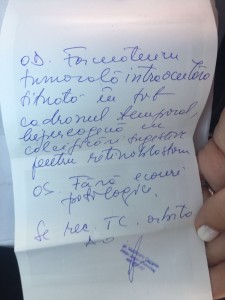 OD. Formațiune
tumorală intraoculară
situată în
cadranul temporal,
hiperecogenă cu
calcificări sugestive
pentru retinoblastom
OS. Fără ecouri
patologice.
Se rec. TC. orbite